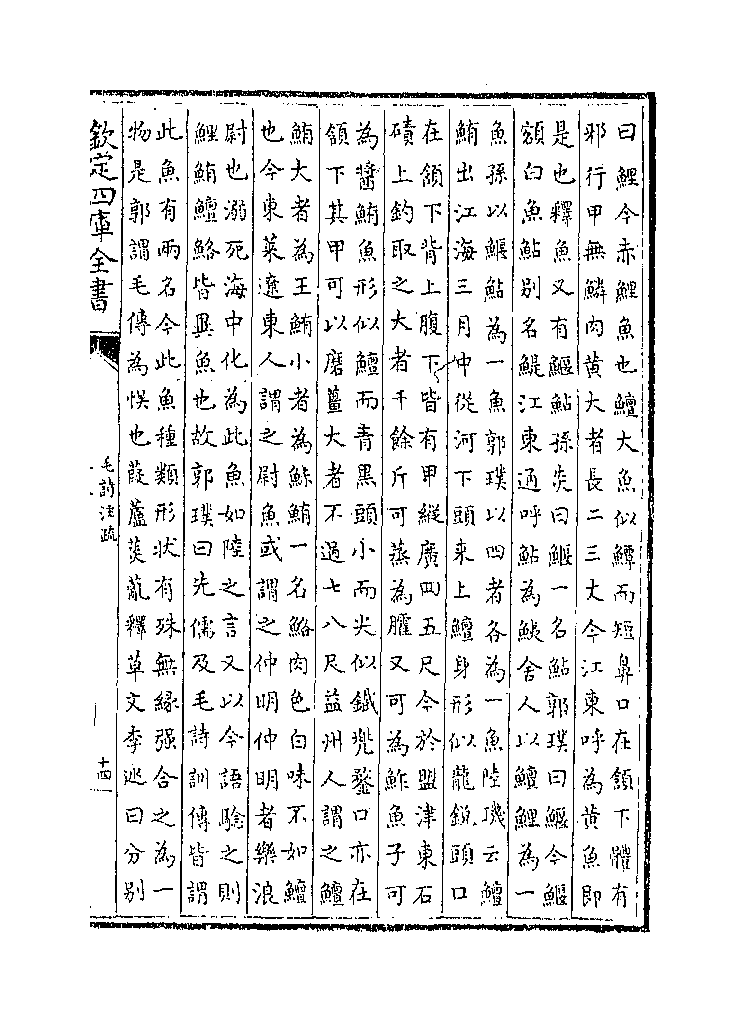 曰鯉今赤鯉魚也鱣大魚似鱏而短鼻口在頷下體有
邪行甲無鱗肉黄大者長二三丈今江東呼為黄魚即
是也釋魚又有鰋鮎孫炎曰鰋一名鮎郭璞曰鰋今鰋
額白魚鮎别名鯷江東通呼鮎為鮧舍人以鱣鯉為一
魚孫以鰋鮎為一魚郭璞以四者各為一魚陸璣云鱣
鮪出江海三月中從河下頭來上鱣身形似龍鋭頭口
在頷下背上腹下皆有甲縱廣四五尺今於盟津東石
磧上釣取之大者千餘斤可蒸為臛又可為鮓魚子可
為醬鮪魚形似鱣而青黑頭小而尖似鐵兠鍪口亦在
頷下其甲可以磨薑大者不過七八尺益州人謂之鱣
鮪大者為王鮪小者為鮛鮪一名鮥肉色白味不如鱣
也今東萊遼東人謂之尉魚或謂之仲明仲明者樂浪
尉也溺死海中化為此魚如陸之言又以今語驗之則
鯉鮪鱣鮥皆異魚也故郭璞曰先儒及毛詩訓傳皆謂
此魚有兩名今此魚種類形狀有殊無緣强合之為一
物是郭謂毛傳為悮也葭蘆菼薍釋草文李廵曰分别
欽定四庫全書
毛詩注疏
十四